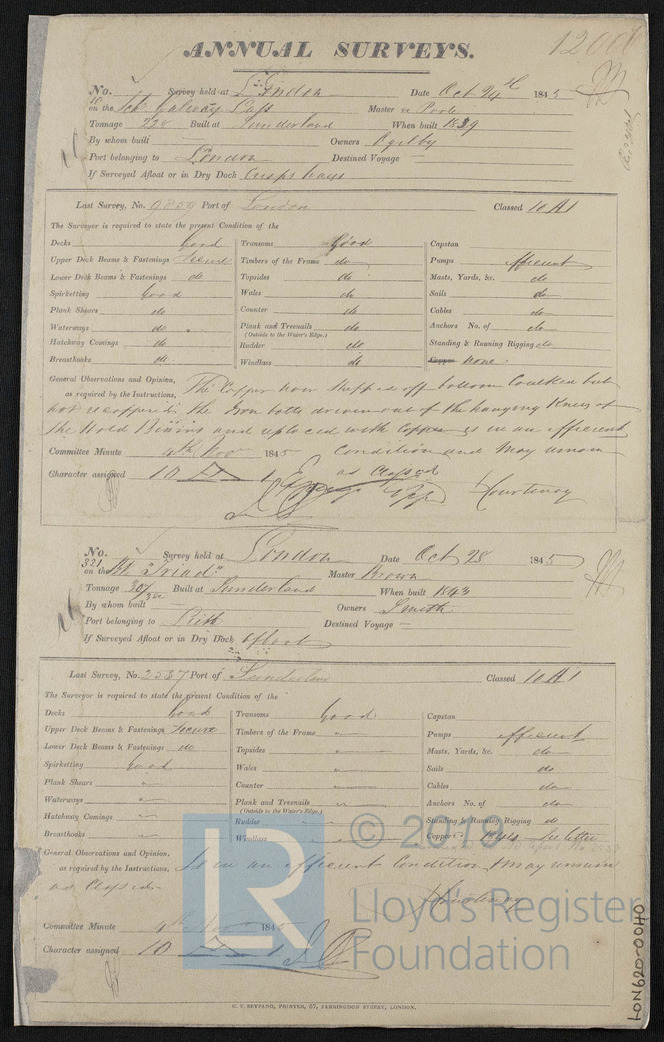 ANNUAL SURVEYS.
No. Survey held at London Date Oct 24th 1845
on the Galway Lass Master
Tonnage 228 Built at Sunderland When built 1839
By whom built Owners Ogilby
Port belonging to London Destined Voyage —
If Surveyed Afloat or in Dry Dock
Last Survey, No. Port of London Classed 10 A1
The Surveyor is required to state the present Condition of the
Decks Good Transoms Good Capstan
Upper Deck Beams & Fastenings Secure Timbers of the Frame do Pumps efficient
Lower Deck Beams & Fastenings do Topsides do Masts, Yards, &c. do
Spirketting Good Wales do Sails do
Plank Shears do Counter do Cables do
Waterways do Plank and Treenails do Anchors No. of do
(Outside to the Water's Edge.)
Hatchway Comings do Rudder do Standing & Running Rigging do
Breasthooks do Windlass do Copper none
General Observations and Opinion, The Copper now stripped off bottom Caulked but
as required by the Instructions,
not recoppered the Iron bolts driven out of the hanging Knees of
the Hold and replaced with Copper is in an efficient
Committee Minute 4th Nov 1845 Condition and May remain
Character assigned 10 A 1 as Classed
Courtenay
No. Survey held at London Date Oct 28 1845
321
on the Bk "Triad" Master Brown
Tonnage 307 Built at Sunderland When built 1843
By whom built — Owners Smith
Port belonging to Leith Destined Voyage —
If Surveyed Afloat or in Dry Dock afloat
Last Survey, No. Port of Sunderland Classed 10 A1
The Surveyor is required to state the present Condition of the
Decks Good Transoms Good Capstan
Upper Deck Beams & Fastenings Secure Timbers of the Frame Pumps efficient
Lower Deck Beams & Fastenings do Topsides Masts, Yards, &c. do
Spirketting Good Wales Sails do
Plank Shears Counter Cables do
Waterways Plank and Treenails Anchors No. of do
(Outside to the Water's Edge.)
Hatchway Comings Rudder Standing & Running Rigging do
Breasthooks Windlass Copper See letter
General Observations and Opinion, Is in an efficient Condition May remain
as required by the Instructions,
as Classed
Courtenay
Committee Minute 4th Nov 1845
Character assigned 10 A 1
© 2019
LR
Lloyd's Register
Foundation
LON620-0040
C. F. SEYFANG, PRINTER, 57, FARRINGDON STREET, LONDON.